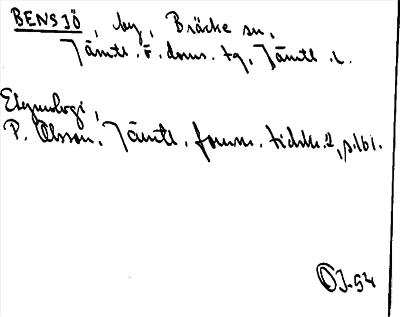 BENSJÖ, by, Bräcke sn,
Jämtl. v. doms. tg, Jämtl. l.
Etymologi,
P. Olsson, Jämtl. fornm. tidskr. 2, s. 161.
OJ-54